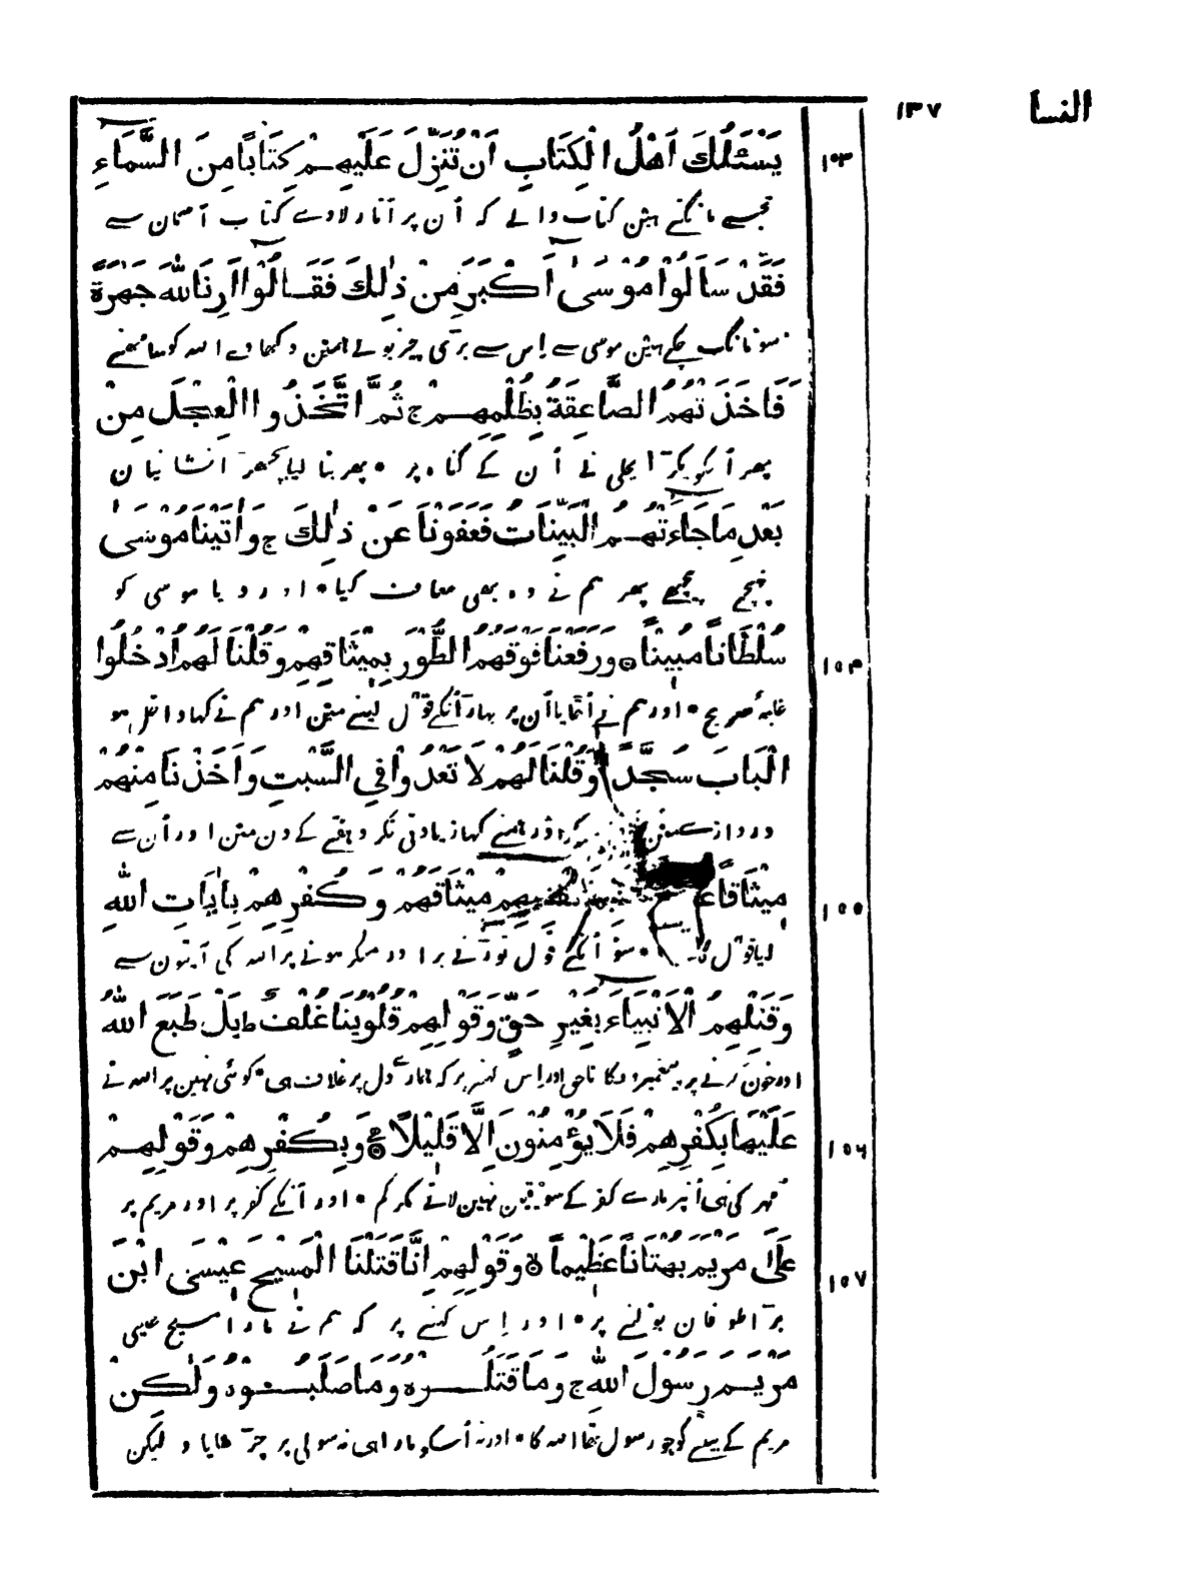 النسا ١٣٧
١٥٣ يَسْئَلُكَ اَهْلُ الْكِتَابِ اَنْ تُنَزِّلَ عَلَيْهِمْ كِتَابًا مِنَ السَّمَاءِ
تجسے مانگتے ہین کتاب والے کہ اُن پر اُتار لاوے کتاب آسمان سے
فَقَدْ سَاَلُوْا مُوْسَىٰ اَكْبَرَ مِنْ ذٰلِكَ فَقَالُوْا اَرِنَا اللّٰهَ جَهْرَةً
سو مانگ چکے ہین موسی سے اِس سے بڑی چیز بولے ہمین دکھادے اللہ کو سامھنے
فَاَخَذَتْهُمُ الصَّاعِقَةُ بِظُلْمِهِمْ ج ثُمَّ اتَّخَذُوا الْعِجْلَ مِنْ
پھر اُنکو پکڑا بجلی نے اُن کے گناہ پر • پھر بنا لیا بچھڑا نشانیان
بَعْدِ مَا جَاءَتْهُمُ الْبَيِّنَاتُ فَعَفَوْنَا عَنْ ذٰلِكَ ج وَاٰتَيْنَا مُوْسَىٰ
پہنچے پیچھے پھر ہم نے وہ بھی معاف کیا • اور دیا موسی کو
١٥٤ سُلْطَانًا مُبِينًا ه وَرَفَعْنَا فَوْقَهُمُ الطُّوْرَ بِمِيْثَاقِهِمْ وَقُلْنَا لَهُمُ ادْخُلُوا
غلبہ صریح • اور ہم نے اُٹھایا اُن پر پہاڑ اُنکے قول لینے مین اور ہم نے کہا داخل ہو
الْبَابَ سُجَّدًا وَقُلْنَا لَهُمْ لَا تَعْدُوْا فِي السَّبْتِ وَاَخَذْنَا مِنْهُمْ
دروازے مین اور ہمنے کہا زیادتی نکرو ہفتے کے دن مین اور اُن سے
١٥٥ مِيْثَاقًا مِيْثَاقَهُمْ وَكُفْرِهِمْ بِاٰيَاتِ اللّٰهِ
لیا قول • سو اُنکے قول توڑنے پر اور منکر ہونے پر اللہ کی آیتون سے
وَقَتْلِهِمُ الْاَنْبِيَاءَ بِغَيْرِ حَقٍّ وَقَوْلِهِمْ قُلُوْبُنَا غُلْفٌ ط بَلْ طَبَعَ اللّٰهُ
اور خون کرنے پر پیغمبرون کا ناحق اور اِس کہنے پر کہ ہمارے دل پر غلاف ہی • کوئی نہین پر اللہ نے
١٥٦ عَلَيْهَا بِكُفْرِهِمْ فَلَا يُؤْمِنُوْنَ اِلَّا قَلِيْلًا ه وَبِكُفْرِهِمْ وَقَوْلِهِمْ
مُہر کی ہی اُنپر مارے کفر کے سو یقین نہین لاتے مگر کم • اور اُنکے کفر پر اور مریم پر
١٥٧ عَلَىٰ مَرْيَمَ بُهْتَانًا عَظِيْمًا ه وَقَوْلِهِمْ اِنَّا قَتَلْنَا الْمَسِيْحَ عِيْسَى ابْنَ
بڑا طوفان بولنے پر • اور اِس کہنے پر کہ ہم نے مارا مسیح عیسی
مَرْيَمَ رَسُوْلَ اللّٰهِ ج وَمَا قَتَلُوْهُ وَمَا صَلَبُوْهُ وَلٰكِنْ
مریم کے بیٹے کو جو رسول تھا اللہ کا • اور نہ اُسکو مارا ہی نہ سولی پر چڑھایا و لیکن